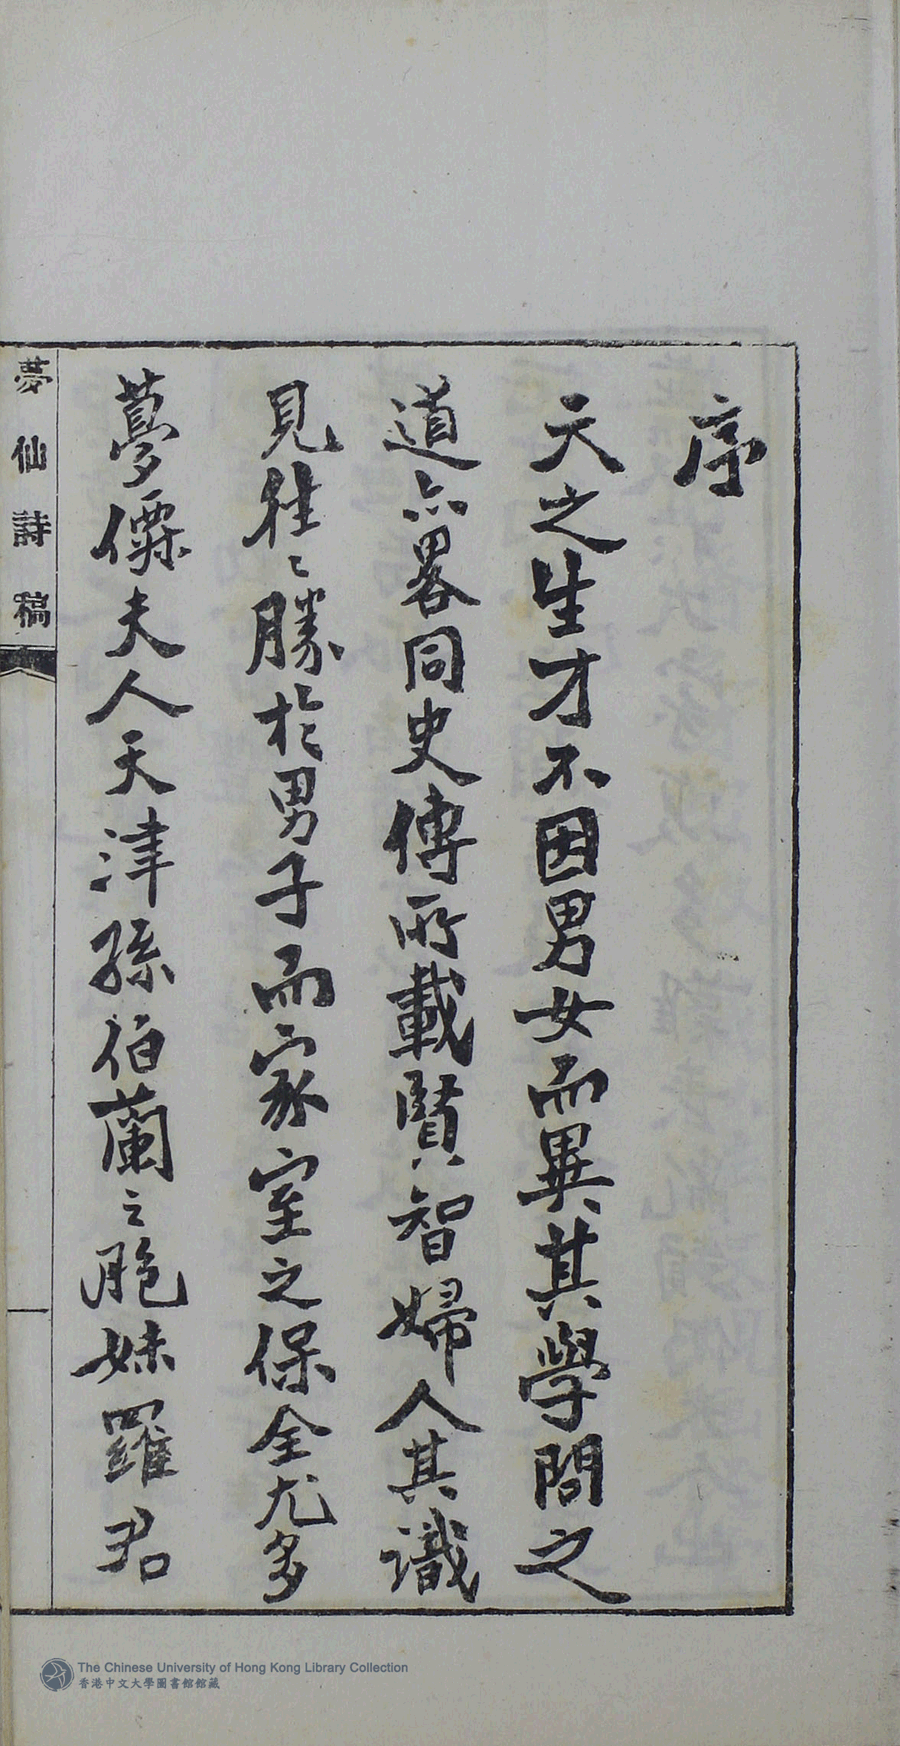 序
天之生才不因男女而異其學問之
道亦畧同史傳所載賢智婦人其識
見往〻勝於男子而家室之保全尤多
夢僊夫人天津孫伯蘭之胞妹羅君
夢仙詩稿
The Chinese University of Hong Kong Library Collection
香港中文大學圖書館館藏